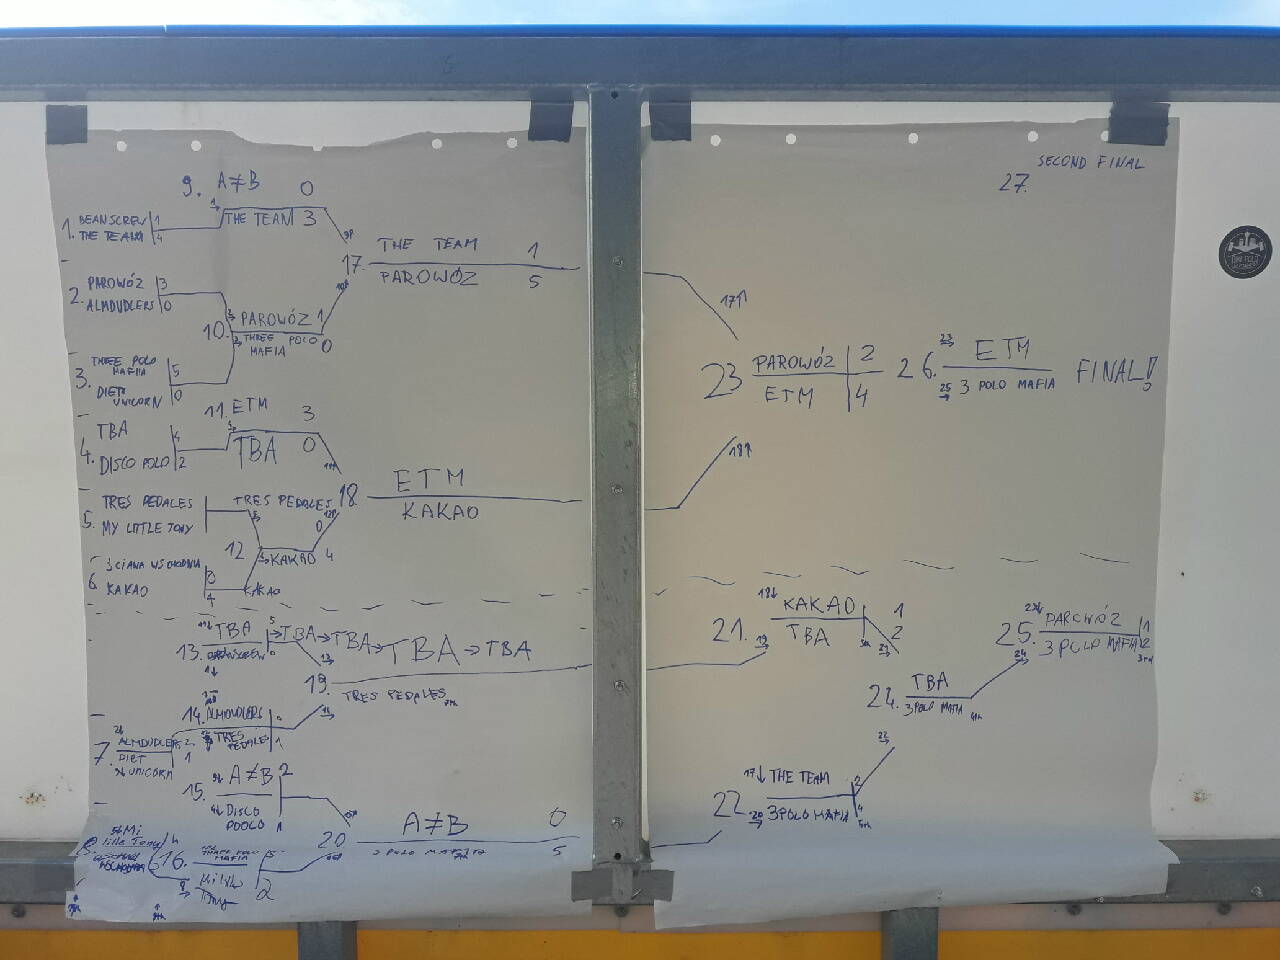 9. A≠B 0
THE TEAM 3
1. BEANSCREW 1
THE TEAM 4
17. THE TEAM 1
PAROWÓZ 5
2. PAROWÓZ 3
ALMDUDLERS 0
10. PAROWÓZ 1
THREE POLO MAFIA 0
3. THREE POLO MAFIA 5
DIET UNICORN 0
11. ETM 3
TBA 0
4. TBA
DISCO POLO 2
18. ETM
KAKAO
5. TRES PEDALES
MY LITTLE TONY
TRES PEDALES 0
12 KAKAO 4
6. ŚCIANA WSCHODNIA
KAKAO 4
KAKAO
13. TBA 5
BEANSCREW 0
→TBA→TBA→TBA→TBA
19. TRES PEDALES 7th
14. ALMDUDLERS
TRES PEDALES 1
7. ALMDUDLERS 2
DIET UNICORN 1
15. A≠B 2
DISCO POOLO 1
20 A≠B 0
3 POLO MAFIA 5
Mi little Tony
16. THREE POLO MAFIA 5
Tony 2
SECOND FINAL
27.
17↑
23 PAROWÓZ 2
ETM 4
18↑
26. ETM
3 POLO MAFIA
FINAL!
21. KAKAO 1
TBA 2
25. PAROWÓZ 1
3 POLO MAFIA 2
3rd
24. TBA
3 POLO MAFIA 4th
22. 17↓ THE TEAM 2
3 POLO MAFIA 4
5th